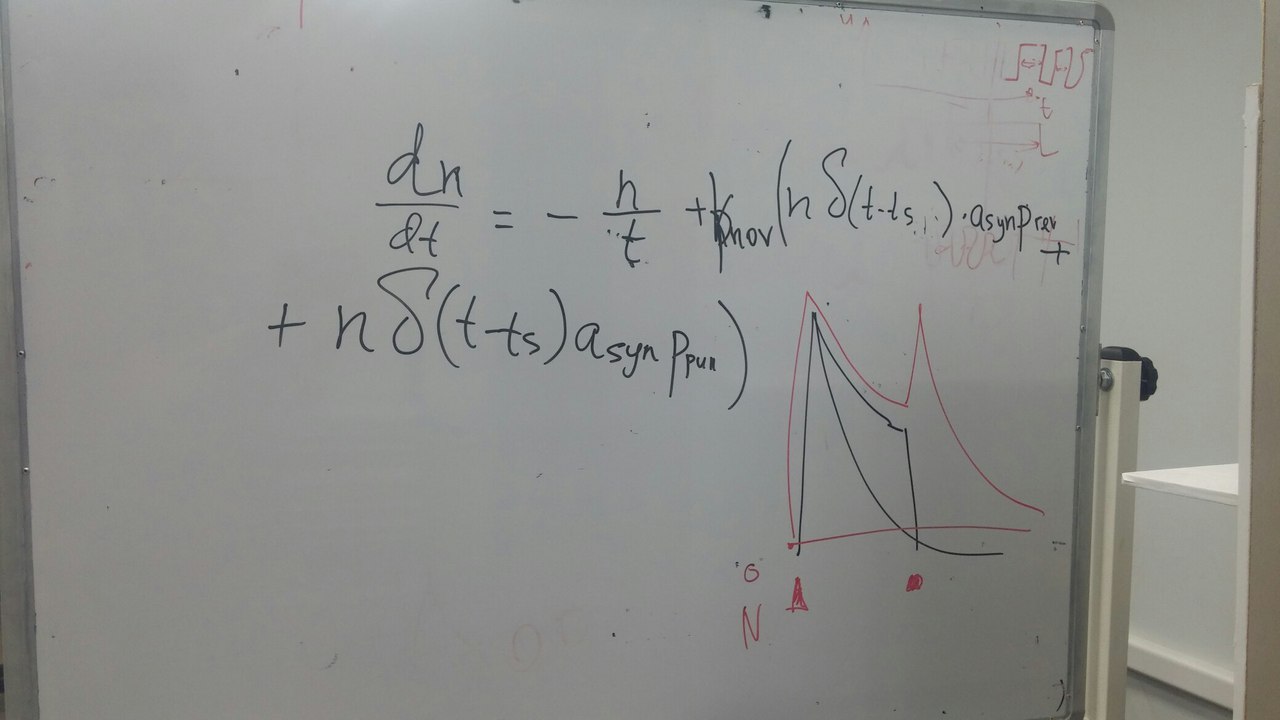 dn/dt = - n/t + k_nov (n δ(t-ts) · a_syn p_rev +
+ n δ(t-ts) a_syn p_pun)
t
0
N